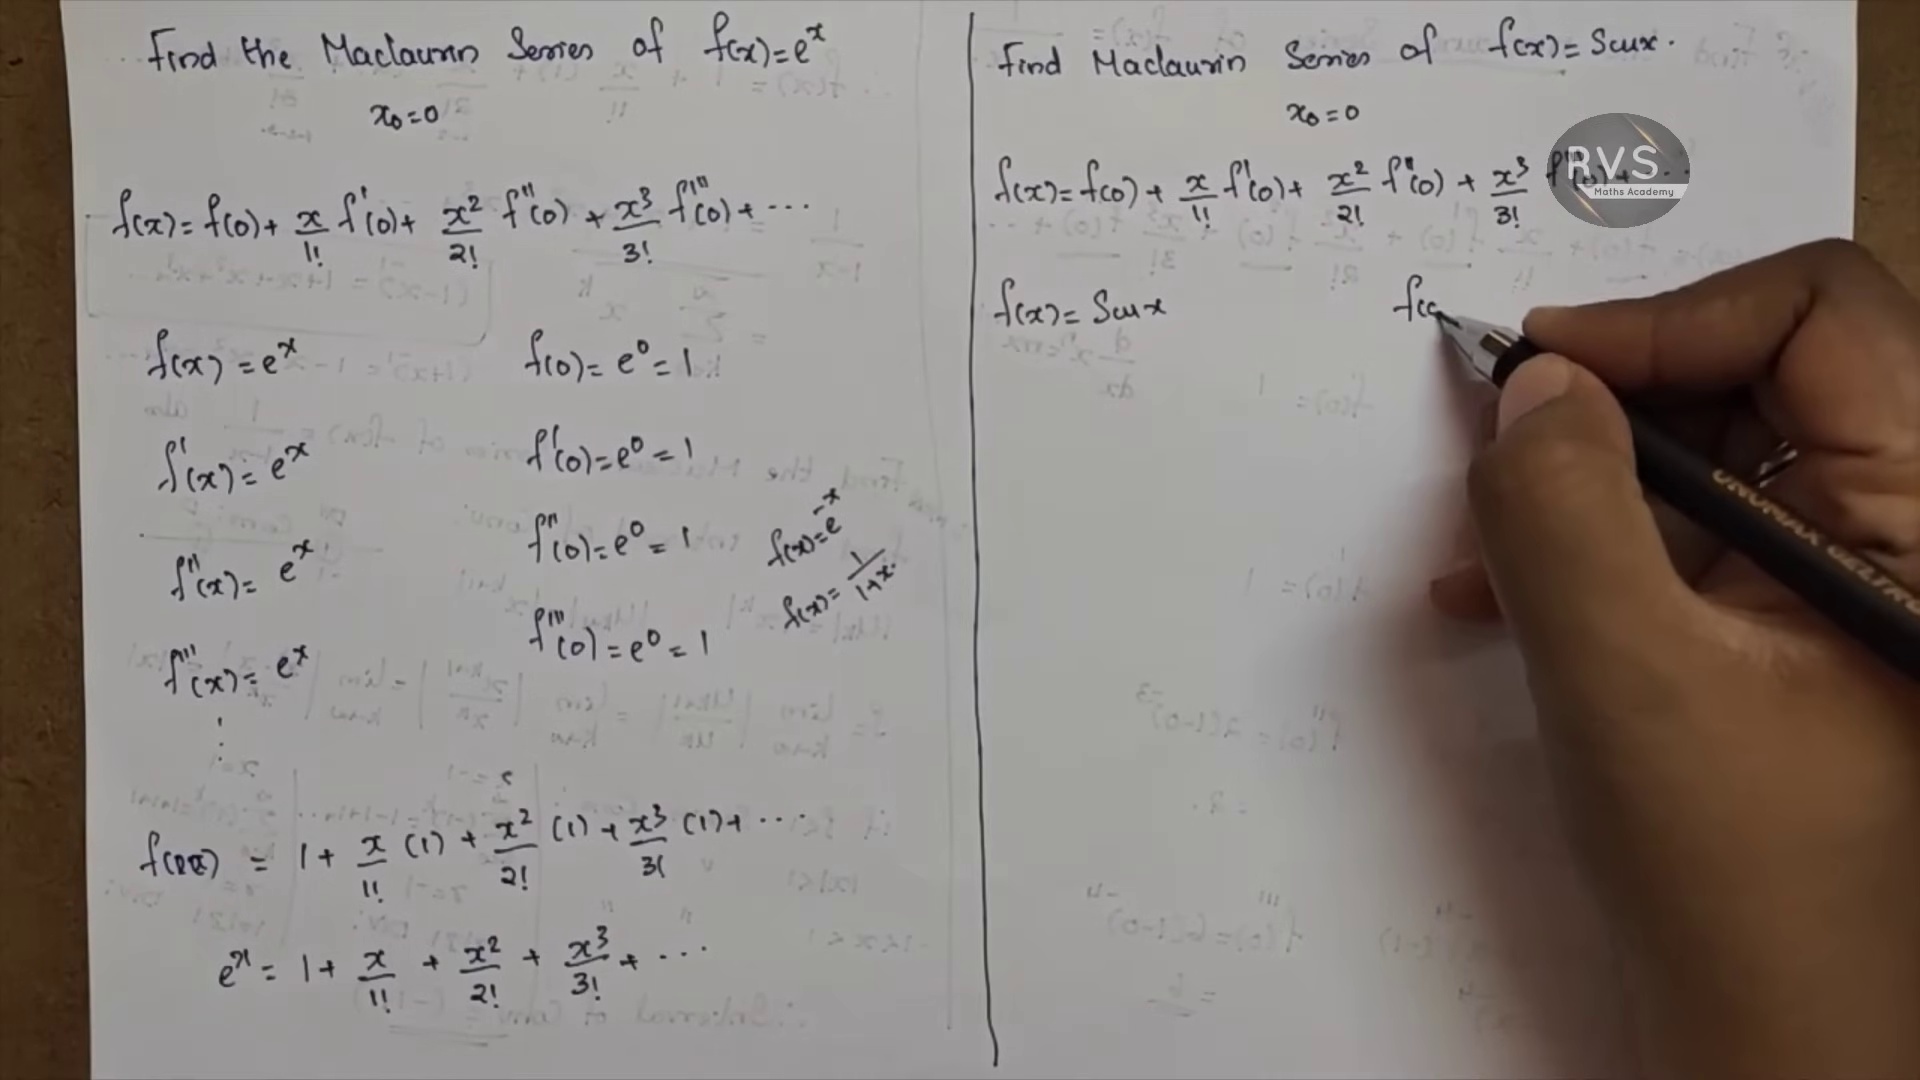 Find the Maclaurin Series of f(x)=e^x
x₀=0
f(x)=f(0)+ x/1! f'(0)+ x²/2! f''(0) + x³/3! f'''(0)+ ...
f(x)=e^x f(0)=e⁰=1
f'(x)=e^x f'(0)=e⁰=1
f''(x)= e^x f''(0)=e⁰=1
f(x)=e^-x
f(x)= 1/1+x.
f'''(x)= e^x f'''(0)=e⁰=1
= 1+ x/1! (1) + x²/2! (1)+ x³/3! (1)+ ...
e^x = 1+ x/1! + x²/2! + x³/3! + ...
Find Maclaurin Series of f(x)= Sinx.
x₀=0
f(x)=f(0)+ x/1! f'(0)+ x²/2! f''(0) + x³/3! f'''(0)+ ...
RVS
Maths Academy
f(x)= Sinx f(
UNOMAX